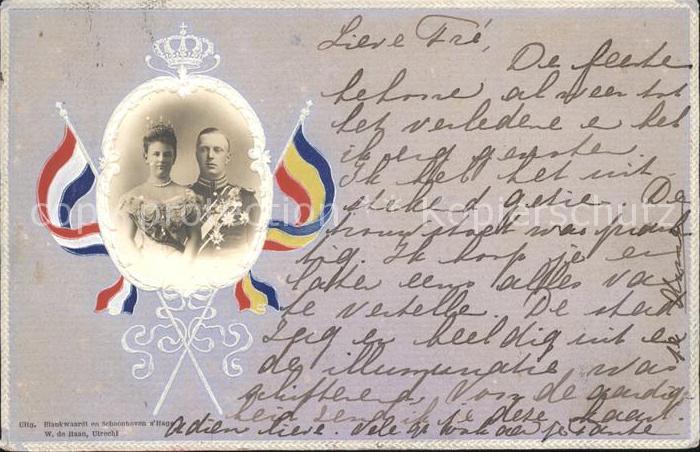 Lieve Fré,
De feeste
behoore al weer tot
het verledene en het
ik erg genoten.
Ik heb het uit
stekend gezie. De
trouwstoet was prach
tig. Ik hoop je er
later eens alles va
te vertelle. De stad
zag er beeldig uit en
de illuminatie was
schitterend. Voor de aardig
heid zend ik je deze kaart.
Adieu lieve. Vele
tante
Uitg. Blankwaardt en Schoonhoven s'Hage
W. de Haan, Utrecht
Kopierschutz